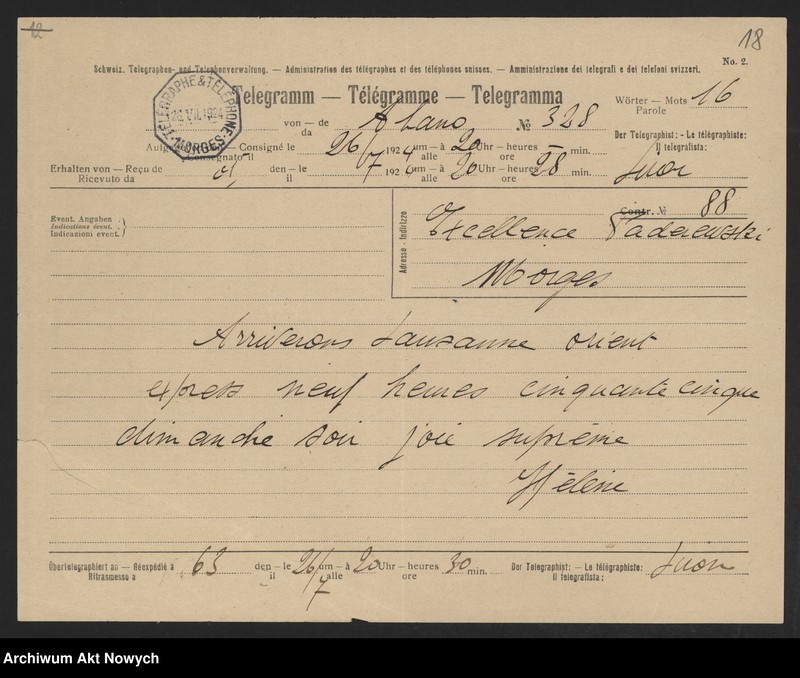 12
18
No. 2.
Schweiz. Telegraphen- und Telephonverwaltung. — Administration des télégraphes et des téléphones suisses. — Amministrazione dei telegrafi e dei telefoni svizzeri.
TELEGRAPHE & TÉLÉPHONE
26.VII.1924
MORGES
Telegramm — Télégramme — Telegramma
Wörter — Mots 16
Parole
von — de Abano № 328
da
Der Telegraphist: — Le télégraphiste:
Il telegrafista:
Consigné le 26/7 1924 um — à 20 Uhr — heures min.
Consegnato il alle ore
Erhalten von — Reçu de den — le 1924 um — à 20 Uhr — heures 28 min.
Ricevuto da il alle ore
Event. Angaben
Indications évent.
Indicazioni event.
Contr. № 88
Adresse - Indirizzo
Excellence Paderewski
Morges
Arriverons Lausanne orient
express neuf heures cinquante cinque
dimanche soir joie suprême
Hélène
Übertelegraphiert an — Réexpédié à 63 den — le 26/7 um — à 20 Uhr — heures 30 min.
Ritrasmesso a il alle ore
Der Telegraphist: — Le télégraphiste:
Il telegrafista:
Archiwum Akt Nowych